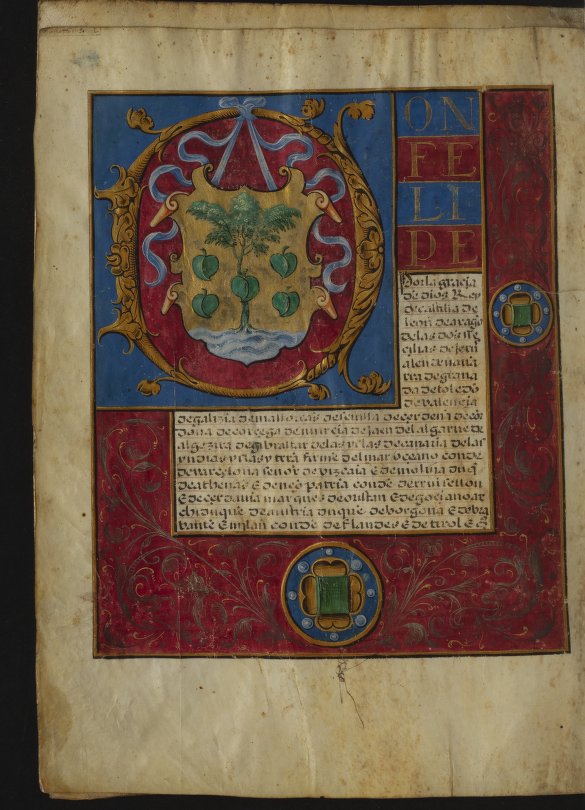 D
ON
FE
LI
PE
Por la gracia
de dios Rey
de castilla de
leon de arago
de las dos se
cilias de Jeru
alen de navar
rra de grana
da de toledo
de valencia
de galizia de mallorcas de sevilla de cerdeña de cor
dova de corcega de murcia de jaen del algarve de
algezira de gibraltar de las yslas de canaria de las
yndias yslas y trra firme del mar oceano conde
de varcelona señor de vizcaia E de molina duq
de athenas E de neo patria conde de rruisellon
E de cerdania marques de oristan E de gociano ar
chiduque de austria duque de borgoña E de bra
bante E milan conde de flandes E de tirol E